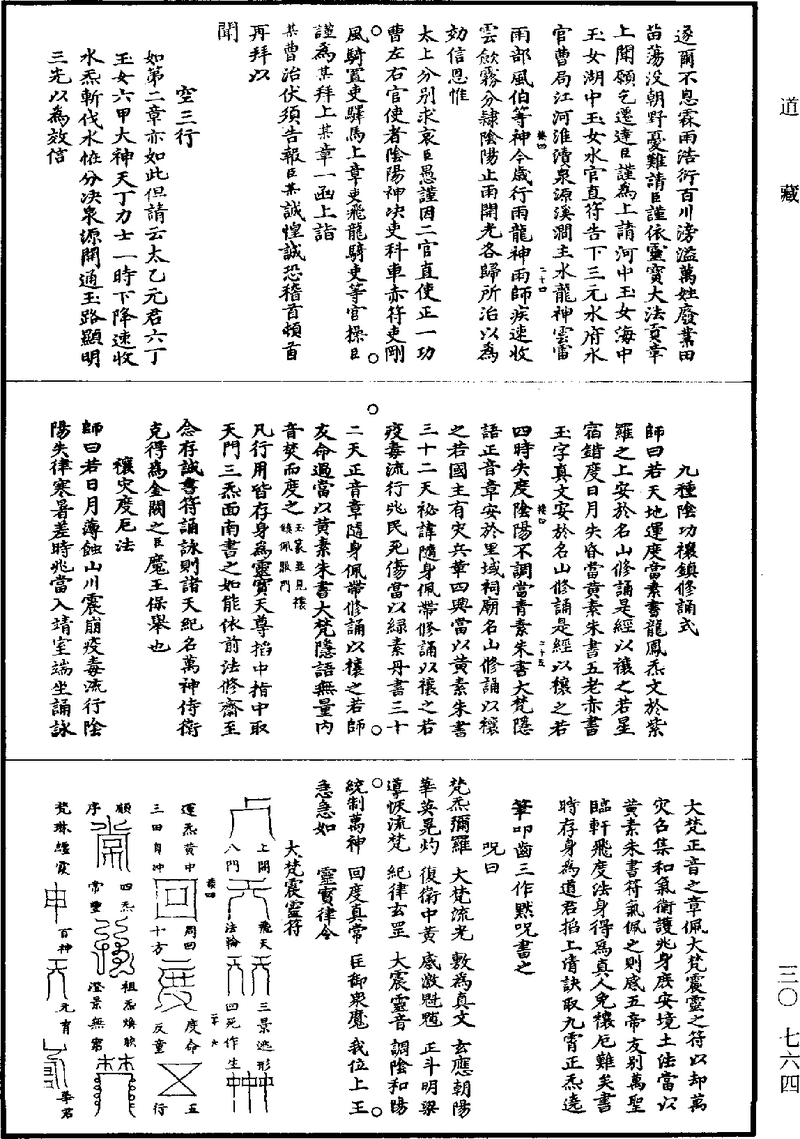 道藏
遂爾不息霖雨浩衍百川滂溢萬姓廢業田
苗蕩没朝野憂難請臣謹依靈寶大法貢章
上聞願乞遷達臣謹為上請河中玉女海中
玉女湖中玉女水官直符告下三元水府水
官曹局江河淮瀆泉源溪澗主水龍神雲雷
雨部風伯等神今歲行雨龍神雨師疾速收
雲斂霧分隸陰陽止雨開光各歸所治以為
効信恩惟
太上分別求哀臣愚謹因二官直使正一功
曹左右官使者陰陽神决吏科車赤符吏剛
風騎置吏驛馬上章吏飛龍騎吏等官操臣
謹為某拜上某章一函上詣
某曹治伏須告報臣某誠惶誠恐稽首頓首
再拜以
聞
空三行
如第二章亦如此但請云太乙元君六丁
玉女六甲大神天丁力士一時下降速收
水炁斬伐水怪分决泉源開通玉路顯明
三光以為效信
九種陰功禳鎮修誦式
師曰若天地運度當素書龍鳳炁文於紫
羅之上安於名山修誦是經以禳之若星
宿錯度日月失昏當黃素朱書五老赤書
玉字真文安於名山修誦是經以禳之若
四時失度陰陽不調當青素朱書大梵隱
語正音章安於里域祠廟名山修誦以禳
之若國主有灾兵革四興當以黃素朱書
三十二天祕諱隨身佩帶修誦以禳之若
疫毒流行兆民死傷當以綠素丹書三十
二天正音章隨身佩帶修誦以禳之若師
友命過當以黃素朱書大梵隱語無量內
音焚而度之玉篆並見禳鎮佩服門
凡行用皆存身為靈寶天尊掐中指中取
天門三炁西南書之如能依前法修齋至
念存誠書符誦詠則諸天紀名萬神侍衛
克得為金闕之臣魔王保舉也
禳灾度厄法
師曰若日月薄蝕山川震崩疫毒流行陰
陽失律寒暑差時兆當入靖室端坐誦詠
大梵正音之章佩大梵震靈之符以却萬
灾召集和氣衛護兆身庶安境土法當以
黃素朱書符氣佩之則感五帝友別萬聖
臨軒飛度法身得為真人免禳厄難矣書
時存身為道君掐上清訣取九霄正炁遶
筆叩齒三作默呪書之
呪曰
梵炁彌羅 大梵流光 敷為真文 玄應朝陽
華英晃灼 復衛中黃 威激魁魁 正斗明梁
導恢流梵 紀律玄罡 大震靈音 調陰和陽
統制萬神 回度真常 臣御衆魔 我位上王
急急如 靈寶律令
大梵震靈符
上開 飛天 三景遁形
八門 法輪 四死作生
運炁黃中 周回 度命 五
三田自沖 十方 反童 行
顧 四炁 祖炁煥欣
序 常豐 澄景無窮
梵珠經震 百神 元有 華君
三〇 七六四